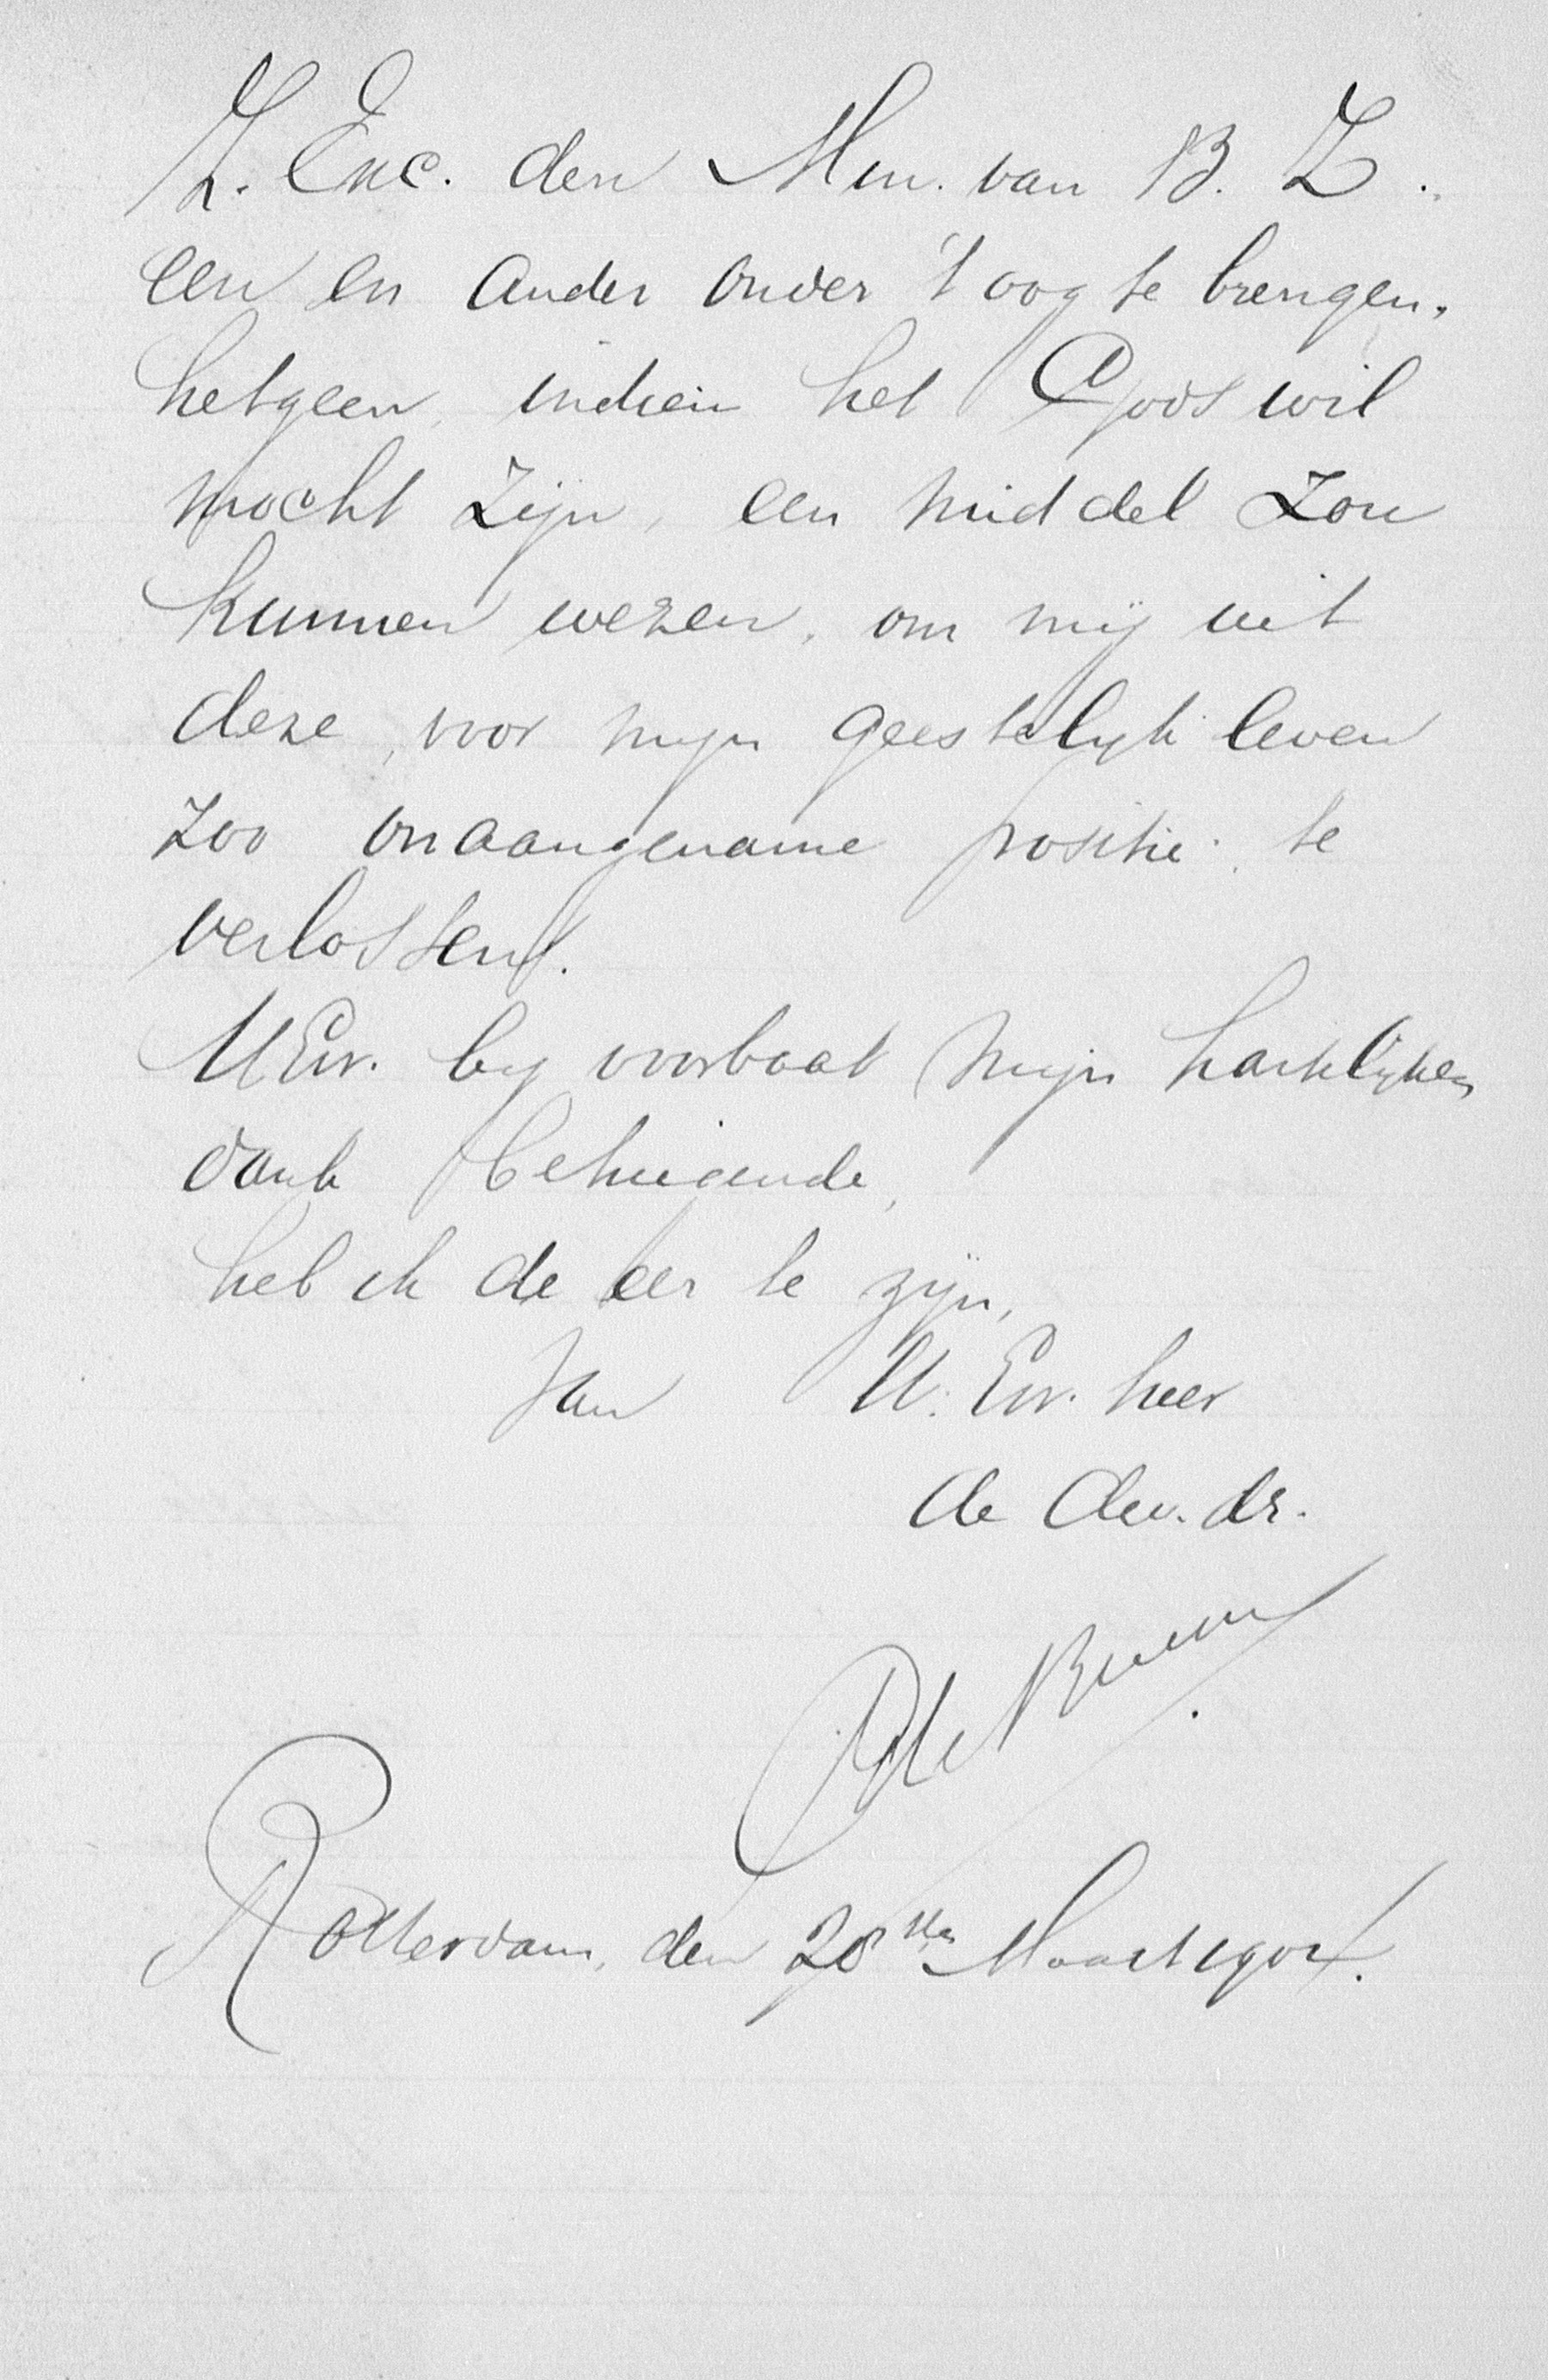 Z. Exc. den Min. van B. Z.
een en ander onder 't oog te brengen,
hetgeen, indien het Gods wil
mocht zijn, een middel zou
kunnen wezen, om mij uit
deze, voor mijn geestelijk leven
zoo onaangename positie, te
verlossen.
UEw. bij voorbaat mijn hartelijken
dank betuigende,
heb ik de eer te zijn,
van U. Ew. heer
de dw. dr.
Rotterdam, den 28sten Maart